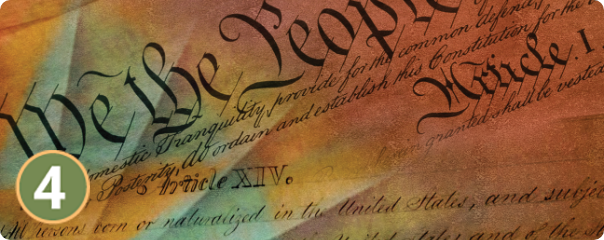 We the People
provide for the common defence,
Domestic Tranquility,
Posterity, do ordain and establish this Constitution for the
Article. I
granted shall be vested
Article XIV.
All persons born or naturalized in the United States, and subject
United States and of the
4